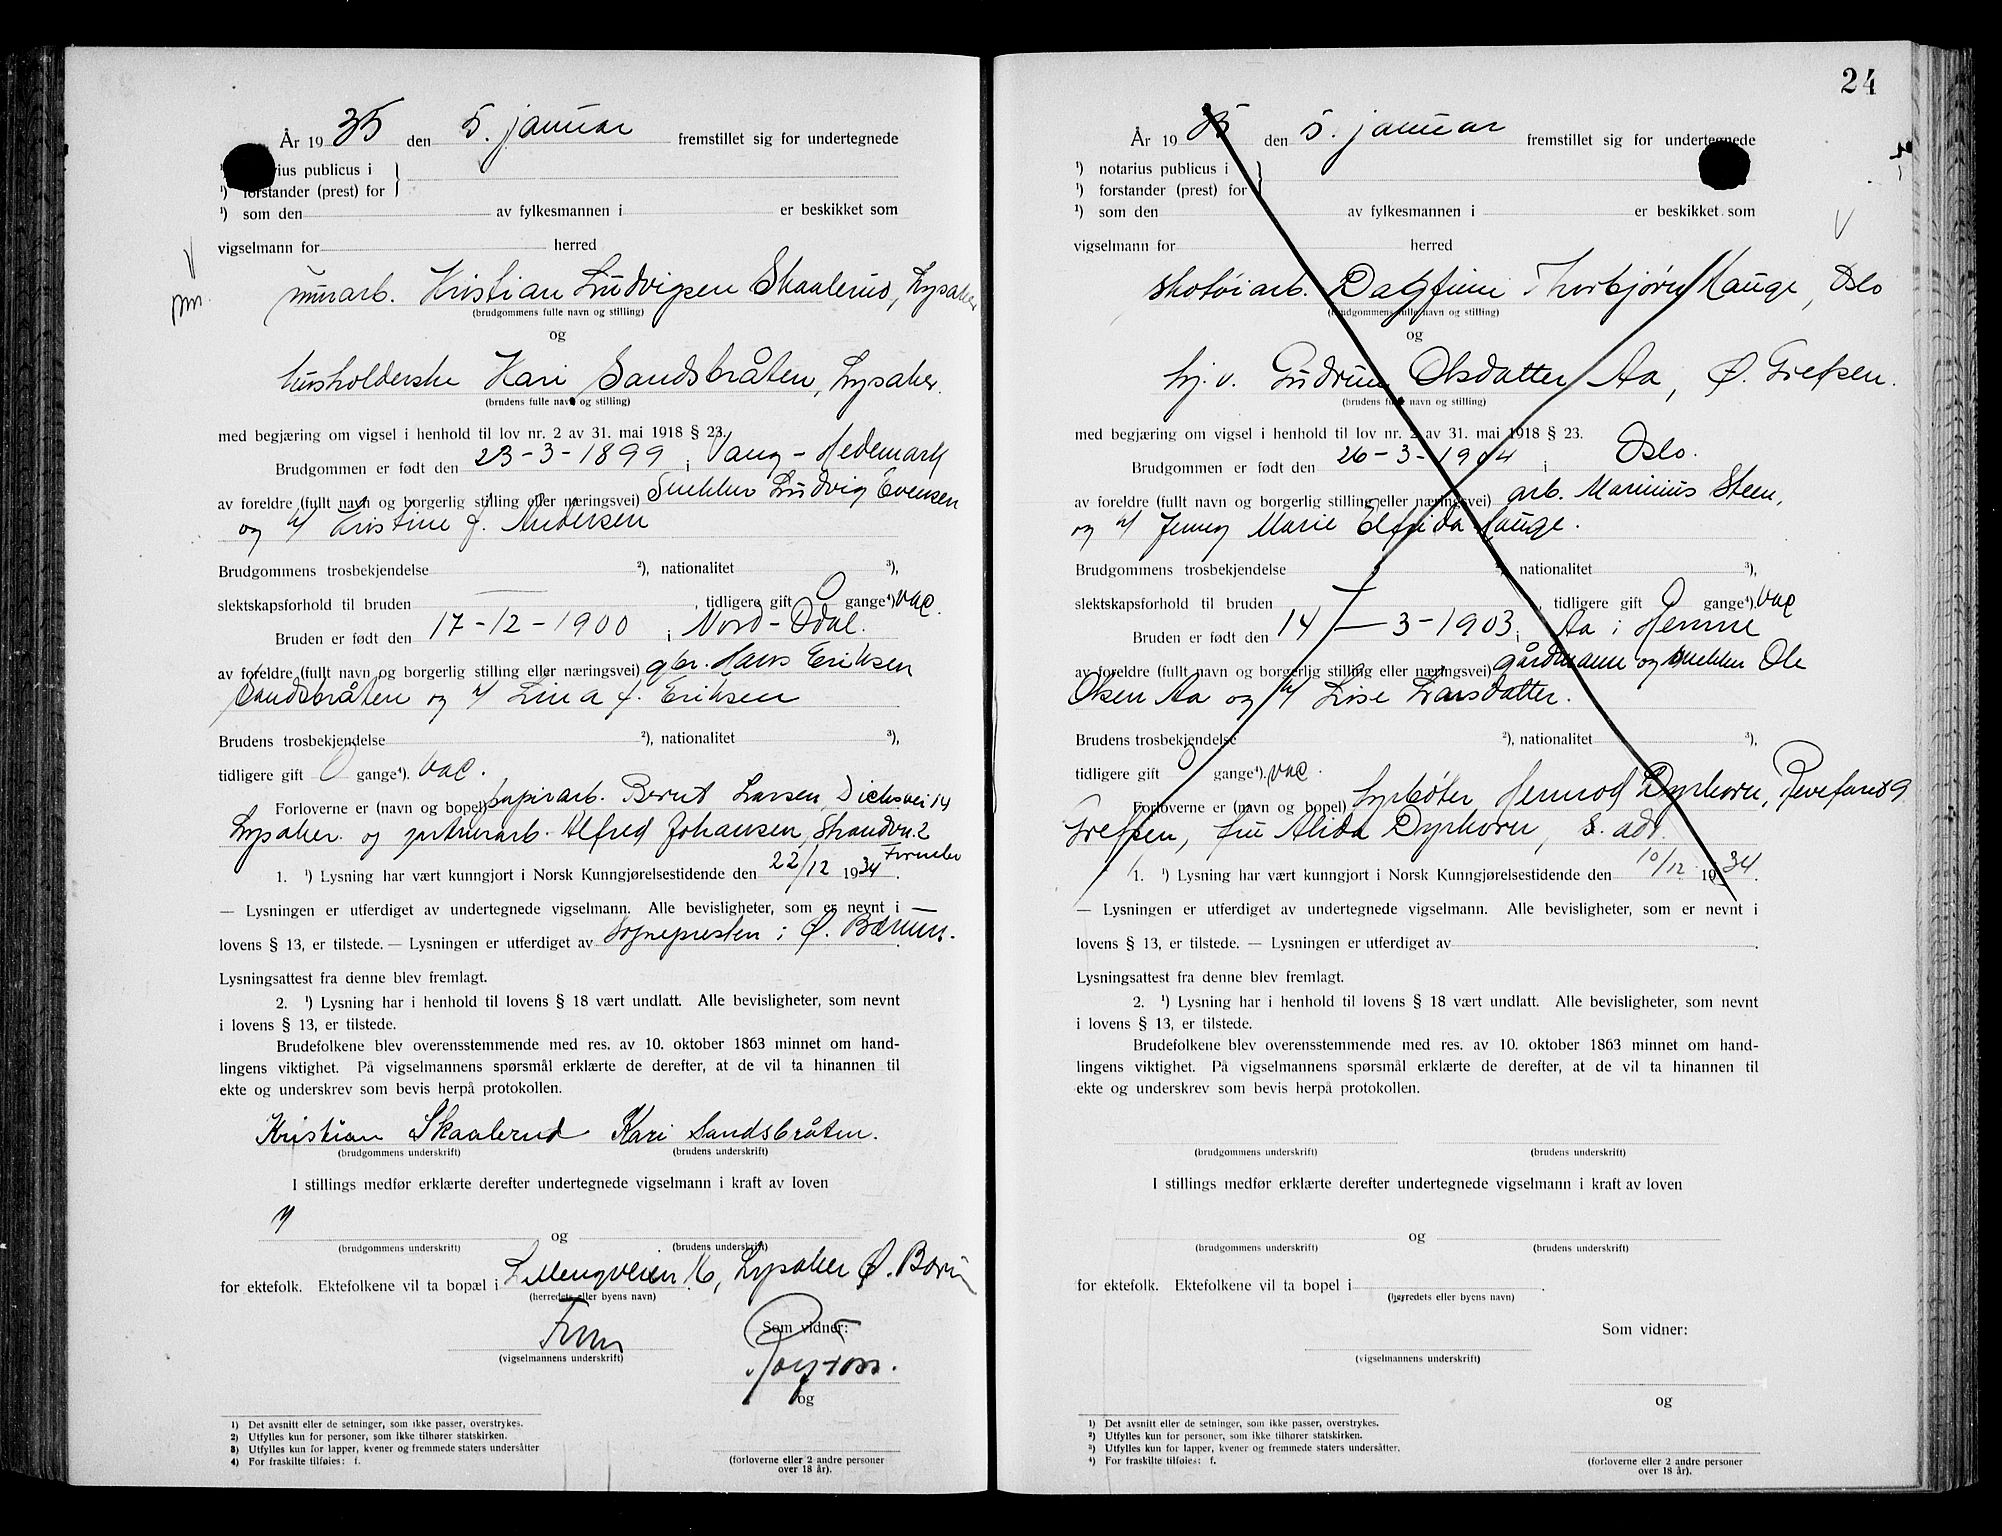 År 1935 den 5. januar fremstillet sig for undertegnede
rius publicus i
¹) forstander (prest) for
¹) som den av fylkesmannen i er beskikket som
vigselmann for herred
murarb. Kristian Ludvigsen Skaalerud, Lysaker
(brudgommens fulle navn og stilling)
og
husholderske Kari Sandsbråten, Lysaker.
(brudens fulle navn og stilling)
med begjæring om vigsel i henhold til lov nr. 2 av 31. mai 1918 § 23.
Brudgommen er født den 23-3-1899 i Vang-Hedemark
av foreldre (fullt navn og borgerlig stilling eller næringsvei) Snekker Ludvig Evensen
og h/ Kristine f. Andersen
Brudgommens trosbekjendelse ²), nationalitet ³),
slektskapsforhold til bruden — , tidligere gift 0 gange⁴) vac.
Bruden er født den 17-12-1900 i Nord-Odal.
av foreldre (fullt navn og borgerlig stilling eller næringsvei) gbr. Hans Eriksen
Sandsbråten og h/ Lina f. Eriksen
Brudens trosbekjendelse ²), nationalitet ³),
tidligere gift 0 gange⁴). vac.
Forloverne er (navn og bopel) papirarb. Bernt Larsen, Dicksvei 14
Lysaker og Alfred Johansen, Strandvn. 2
Fornebu
1. ¹) Lysning har vært kunngjort i Norsk Kunngjørelsestidende den 22/12 1934.
— Lysningen er utferdiget av undertegnede vigselmann. Alle bevisligheter, som er nevnt i
lovens § 13, er tilstede. — Lysningen er utferdiget av Sognepresten i Ø. Bærum.
Lysningsattest fra denne blev fremlagt.
2. ¹) Lysning har i henhold til lovens § 18 vært undlatt. Alle bevisligheter, som nevnt
i lovens § 13, er tilstede.
Brudefolkene blev overensstemmende med res. av 10. oktober 1863 minnet om hand-
lingens viktighet. På vigselmannens spørsmål erklærte de derefter, at de vil ta hinannen til
ekte og underskrev som bevis herpå protokollen.
Kristian Skaalerud Kari Sandsbråten.
(brudgommens underskrift) (brudens underskrift)
I stillings medfør erklærte derefter undertegnede vigselmann i kraft av loven
og
(brudgommens underskrift) (brudens underskrift)
for ektefolk. Ektefolkene vil ta bopæl i Lillengveien 16, Lysaker Ø. Bærum
(herredets eller byens navn)
Som vidner:
(vigselmannens underskrift)
og
1) Det avsnitt eller de setninger, som ikke passer, overstrykes.
2) Utfylles kun for personer, som ikke tilhører statskirken.
3) Utfylles kun for lapper, kvener og fremmede staters undersåtter
4) For fraskilte tilføies: f.
(forloverne eller 2 andre personer
over 18 år).
24
År 1935 den 5. januar fremstillet sig for undertegnede
¹) notarius publicus i
¹) forstander (prest) for
¹) som den av fylkesmannen i er beskikket som
vigselmann for herred
skotøiarb. Dagfinn Thorbjørn Hauge, Oslo
(brudgommens fulle navn og stilling)
og
hj. v. Gudrun Olsdatter Aa, Ø. Grefsen.
(brudens fulle navn og stilling)
med begjæring om vigsel i henhold til lov nr. 2 av 31. mai 1918 § 23.
Brudgommen er født den 26-3-1904 i Oslo.
av foreldre (fullt navn og borgerlig stilling eller næringsvei) arb. Marinius Steen,
og h/ Jenny Marie Elfrida Hauge.
Brudgommens trosbekjendelse ²), nationalitet ³),
slektskapsforhold til bruden — , tidligere gift 0 gange⁴). vac
Bruden er født den 14-3-1903 i Aa i Hemne
av foreldre (fullt navn og borgerlig stilling eller næringsvei) gårdmann og snekker Ole
Olsen Aa og h/ Lise Larsdatter.
Brudens trosbekjendelse ²), nationalitet ³),
tidligere gift 0 gange⁴). vac.
Forloverne er (navn og bopel) Hermod Dyrhorn, 9
Grefsen, fru Alida Dyrhorn, s. adr.
1. ¹) Lysning har vært kunngjort i Norsk Kunngjørelsestidende den 10/12 1934.
— Lysningen er utferdiget av undertegnede vigselmann. Alle bevisligheter, som er nevnt i
lovens § 13, er tilstede. — Lysningen er utferdiget av
Lysningsattest fra denne blev fremlagt.
2. ¹) Lysning har i henhold til lovens § 18 vært undlatt. Alle bevisligheter, som nevnt
i lovens § 13, er tilstede.
Brudefolkene blev overensstemmende med res. av 10. oktober 1863 minnet om hand-
lingens viktighet. På vigselmannens spørsmål erklærte de derefter, at de vil ta hinannen til
ekte og underskrev som bevis herpå protokollen.
(brudgommens underskrift) (brudens underskrift)
I stillings medfør erklærte derefter undertegnede vigselmann i kraft av loven
og
(brudgommens underskrift) (brudens underskrift)
for ektefolk. Ektefolkene vil ta bopel i
(herredets eller byens navn)
Som vidner:
(vigselmannens underskrift)
og
1) Det avsnitt eller de setninger, som ikke passer, overstrykes.
2) Utfylles kun for personer, som ikke tilhører statskirken.
3) Utfylles kun for lapper, kvener og fremmede staters undersåtter.
4) For fraskilte tilføies: f.
(forloverne eller 2 andre personer
over 18 år).